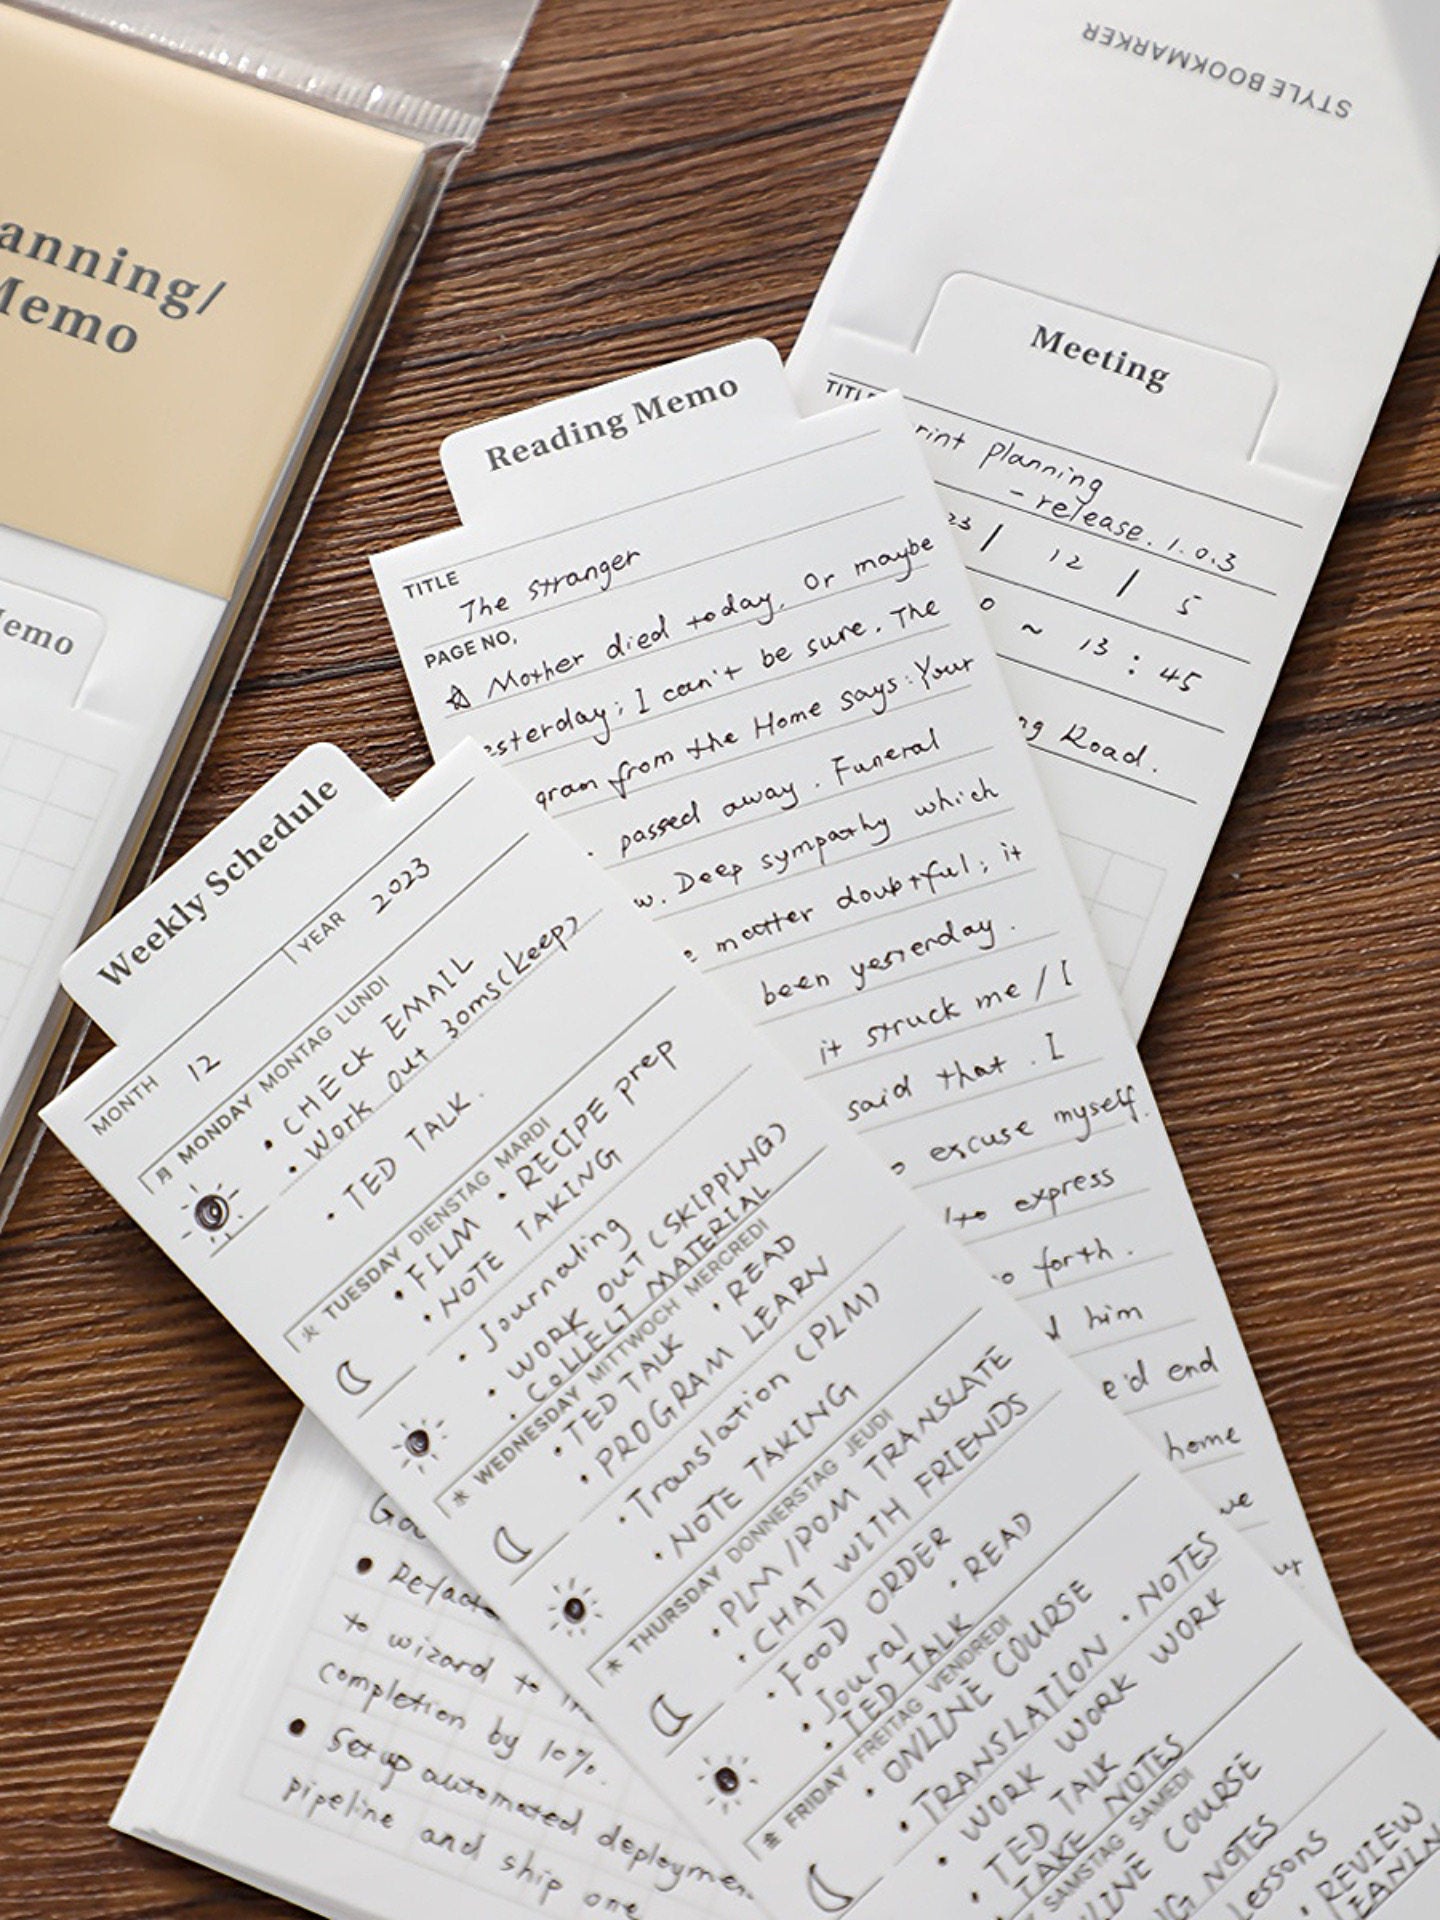 STYLE BOOKMARKER
anning/
Memo
Memo
Meeting
TITLE
rint planning
- release. 1.0.3
23 / 12 / 5
0 ~ 13 : 45
ng Road.
Reading Memo
TITLE
The stranger
PAGE NO.
☆ Mother died today. Or maybe
esterday; I can't be sure. The
gram from the Home says: Your
passed away. Funeral
w. Deep sympathy which
e matter doubtful; it
been yesterday.
it struck me / I
said that. I
o excuse myself.
to express
o forth.
d him
e'd end
home
ve
ur
Weekly Schedule
MONTH 12 YEAR 2023
月 MONDAY MONTAG LUNDI
• CHECK EMAIL
• Work out 30ms (keep)
• TED TALK.
火 TUESDAY DIENSTAG MARDI
• FILM • RECIPE prep
• NOTE TAKING
• Journaling
• WORK OUT (SKIPPING)
• COLLECT MATERIAL
水 WEDNESDAY MITTWOCH MERCREDI
• TED TALK • READ
• PROGRAM LEARN
• Translation (PLM)
• NOTE TAKING
木 THURSDAY DONNERSTAG JEUDI
• PLM / DOM TRANSLATE
• CHAT WITH FRIENDS
• FOOD ORDER
• Joural • READ
• TED TALK
金 FRIDAY FREITAG VENDREDI
• ONLINE COURSE
• TRANSLATION • NOTES
WORK WORK WORK
• TED TALK
• TAKE NOTES
SAMSTAG SAMEDI
LINE COURSE
NG NOTES
Lessons
• REVIEW
EANIN
Goo
• Refacto
to wizard to in
completion by 10%.
• Setup automated deployment
pipeline and ship one